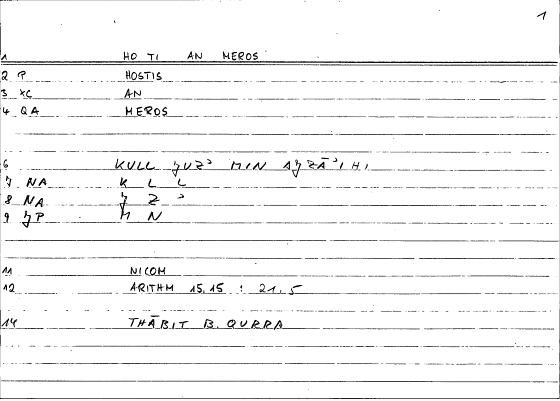 1
1 HO TI AN MEROS
2 P HOSTIS
3 XC AN
4 QA MEROS
6 KULL ǮUZʾ MIN AǮZĀʾIHI
7 NA K L L
8 NA Ǯ Z ʾ
9 ǮP M N
11 NICOM
12 ARITHM 15,15 : 21,5
14 THĀBIT B. QURRA